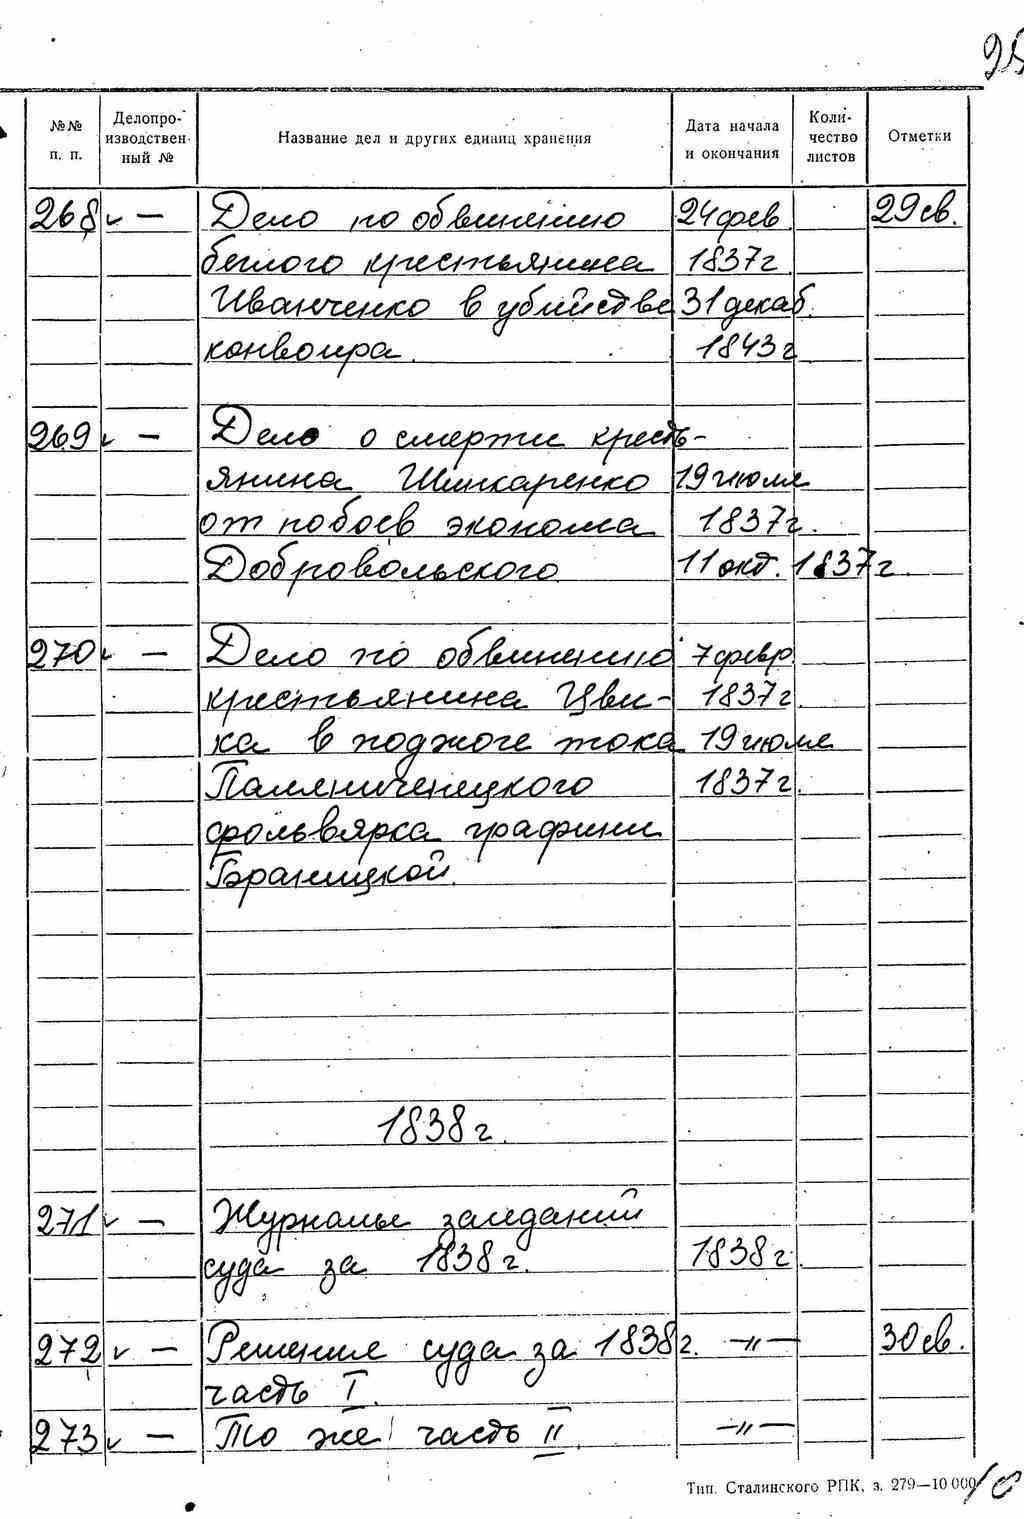 95
№№ п. п. Делопро-изводствен-ный № Название дел и других единиц хранения Дата начала и окончания Коли-чество листов Отметки
268 ✓ — Дело по обвинению 24 фев. 29 св.
беглого крестьянина 1837 г.
Иванченко в убийстве 31 декаб.
конвоира. 1843 г.
269 ✓ — Дело о смерти кресть-
янина Шинкаренко 19 июля
от побоев эконома 1837 г.
Добровольского 11 окт. 1837 г.
270 ✓ — Дело по обвинению 7 февр.
крестьянина Цви- 1837 г.
ка в поджоге тока 19 июля
Паляниченецкого 1837 г.
фольвярка графини
Браницкой.
1838 г.
271 ✓ — Журналы заседаний
суда за 1838 г. 1838 г.
272 ✓ — Решения суда за 1838 г. —"— 30 св.
часть I.
273 ✓ — То же часть II. —"—
Тип. Сталинского РПК, з. 279—10 000